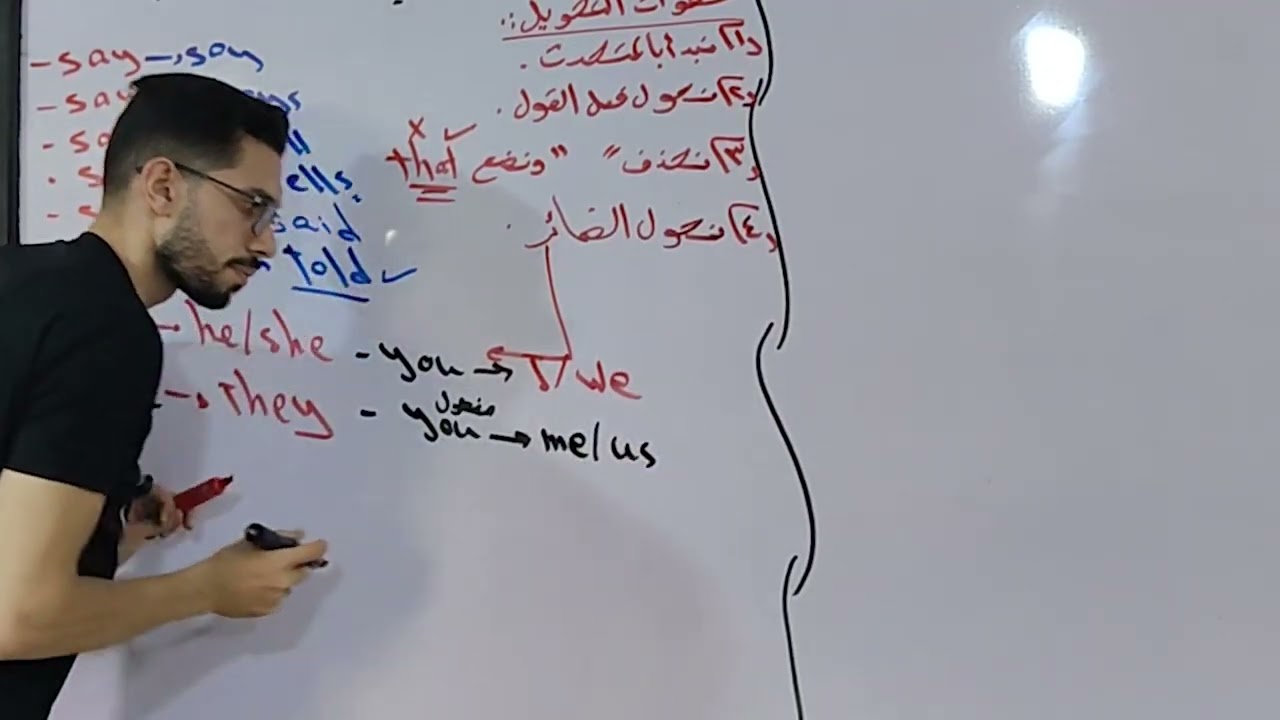 خطوات التحويل :.
١) نبدأ بالمتحدث .
٢) نحول فعل القول .
٣) نحذف " " ونضع that ✓
x
٤) نحول الضمائر .
- say → say
- sa
- sa
ells
said
told ✓
→ he/she - you → I/we
→ They - you → me/us
مفعول